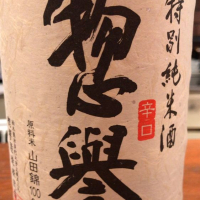 特別純米酒
辛口
惣譽
原料米 山田錦100